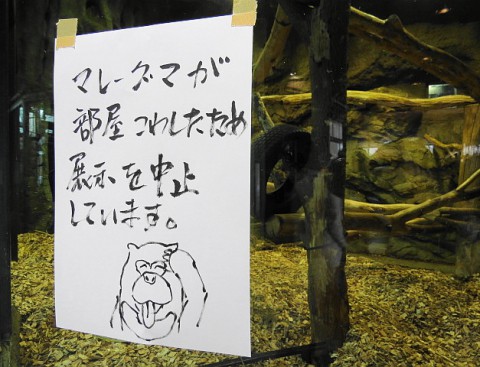 マレーグマが
部屋こわしたため
展示を中止
しています。